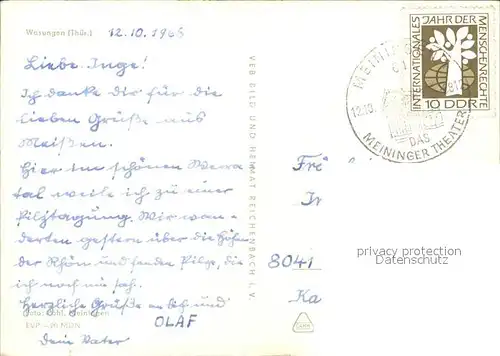 Wasungen (Thür.) 12.10.1968
Liebe Inge!
Ich danke dir für die
lieben Grüße aus
Meißen.
Hier im schönen Werra
tal weile ich zu einer
Pilztagung. Wir wan-
derten gestern über die Höhen
der Rhön und fanden Pilze, die
ich noch nie sah.
Herzliche Grüße an Dich und
OLAF
Dein Vater
Foto: Dahl, Meiningen
EVP
VEB BILD UND HEIMAT REICHENBACH I. V.
INTERNATIONALES JAHR DER MENSCHENRECHTE
10 DDR
12.10.
DAS
MEININGER THEATER
8041
Ka
privacy protection
Datenschutz